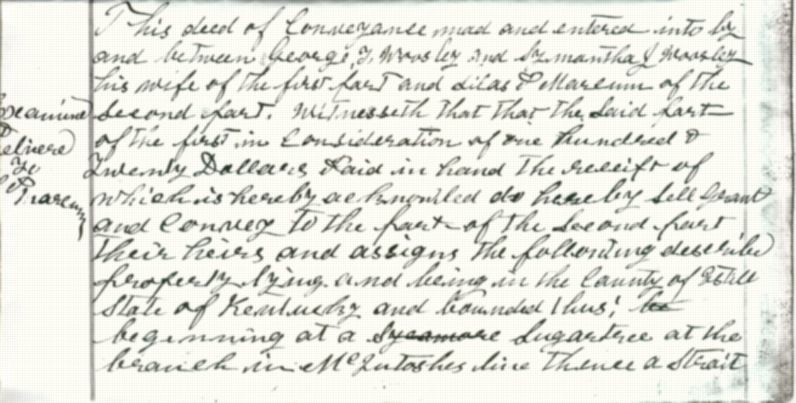 This deed of Conveyance mad and entered into by
and between George T. Woosley and Symantha J Woosley
his wife of the first part and Silas P Marcum of the
second part. Witnesseth that that the said part
of the first in Consideration of one hundred &
Twenty Dollars Paid in hand the receipt of
which is hereby acknowiled do hereby sell grant
and Convey to the part of the second part
their heirs and assigns the following describe
property lying and being in the County of Estill
State of Kentucky and bounded thus; to
beginning at a Sycamore Sugartree at the
branch in McIntoshes line thence a strait
Examined
Delivere
To
Marcum